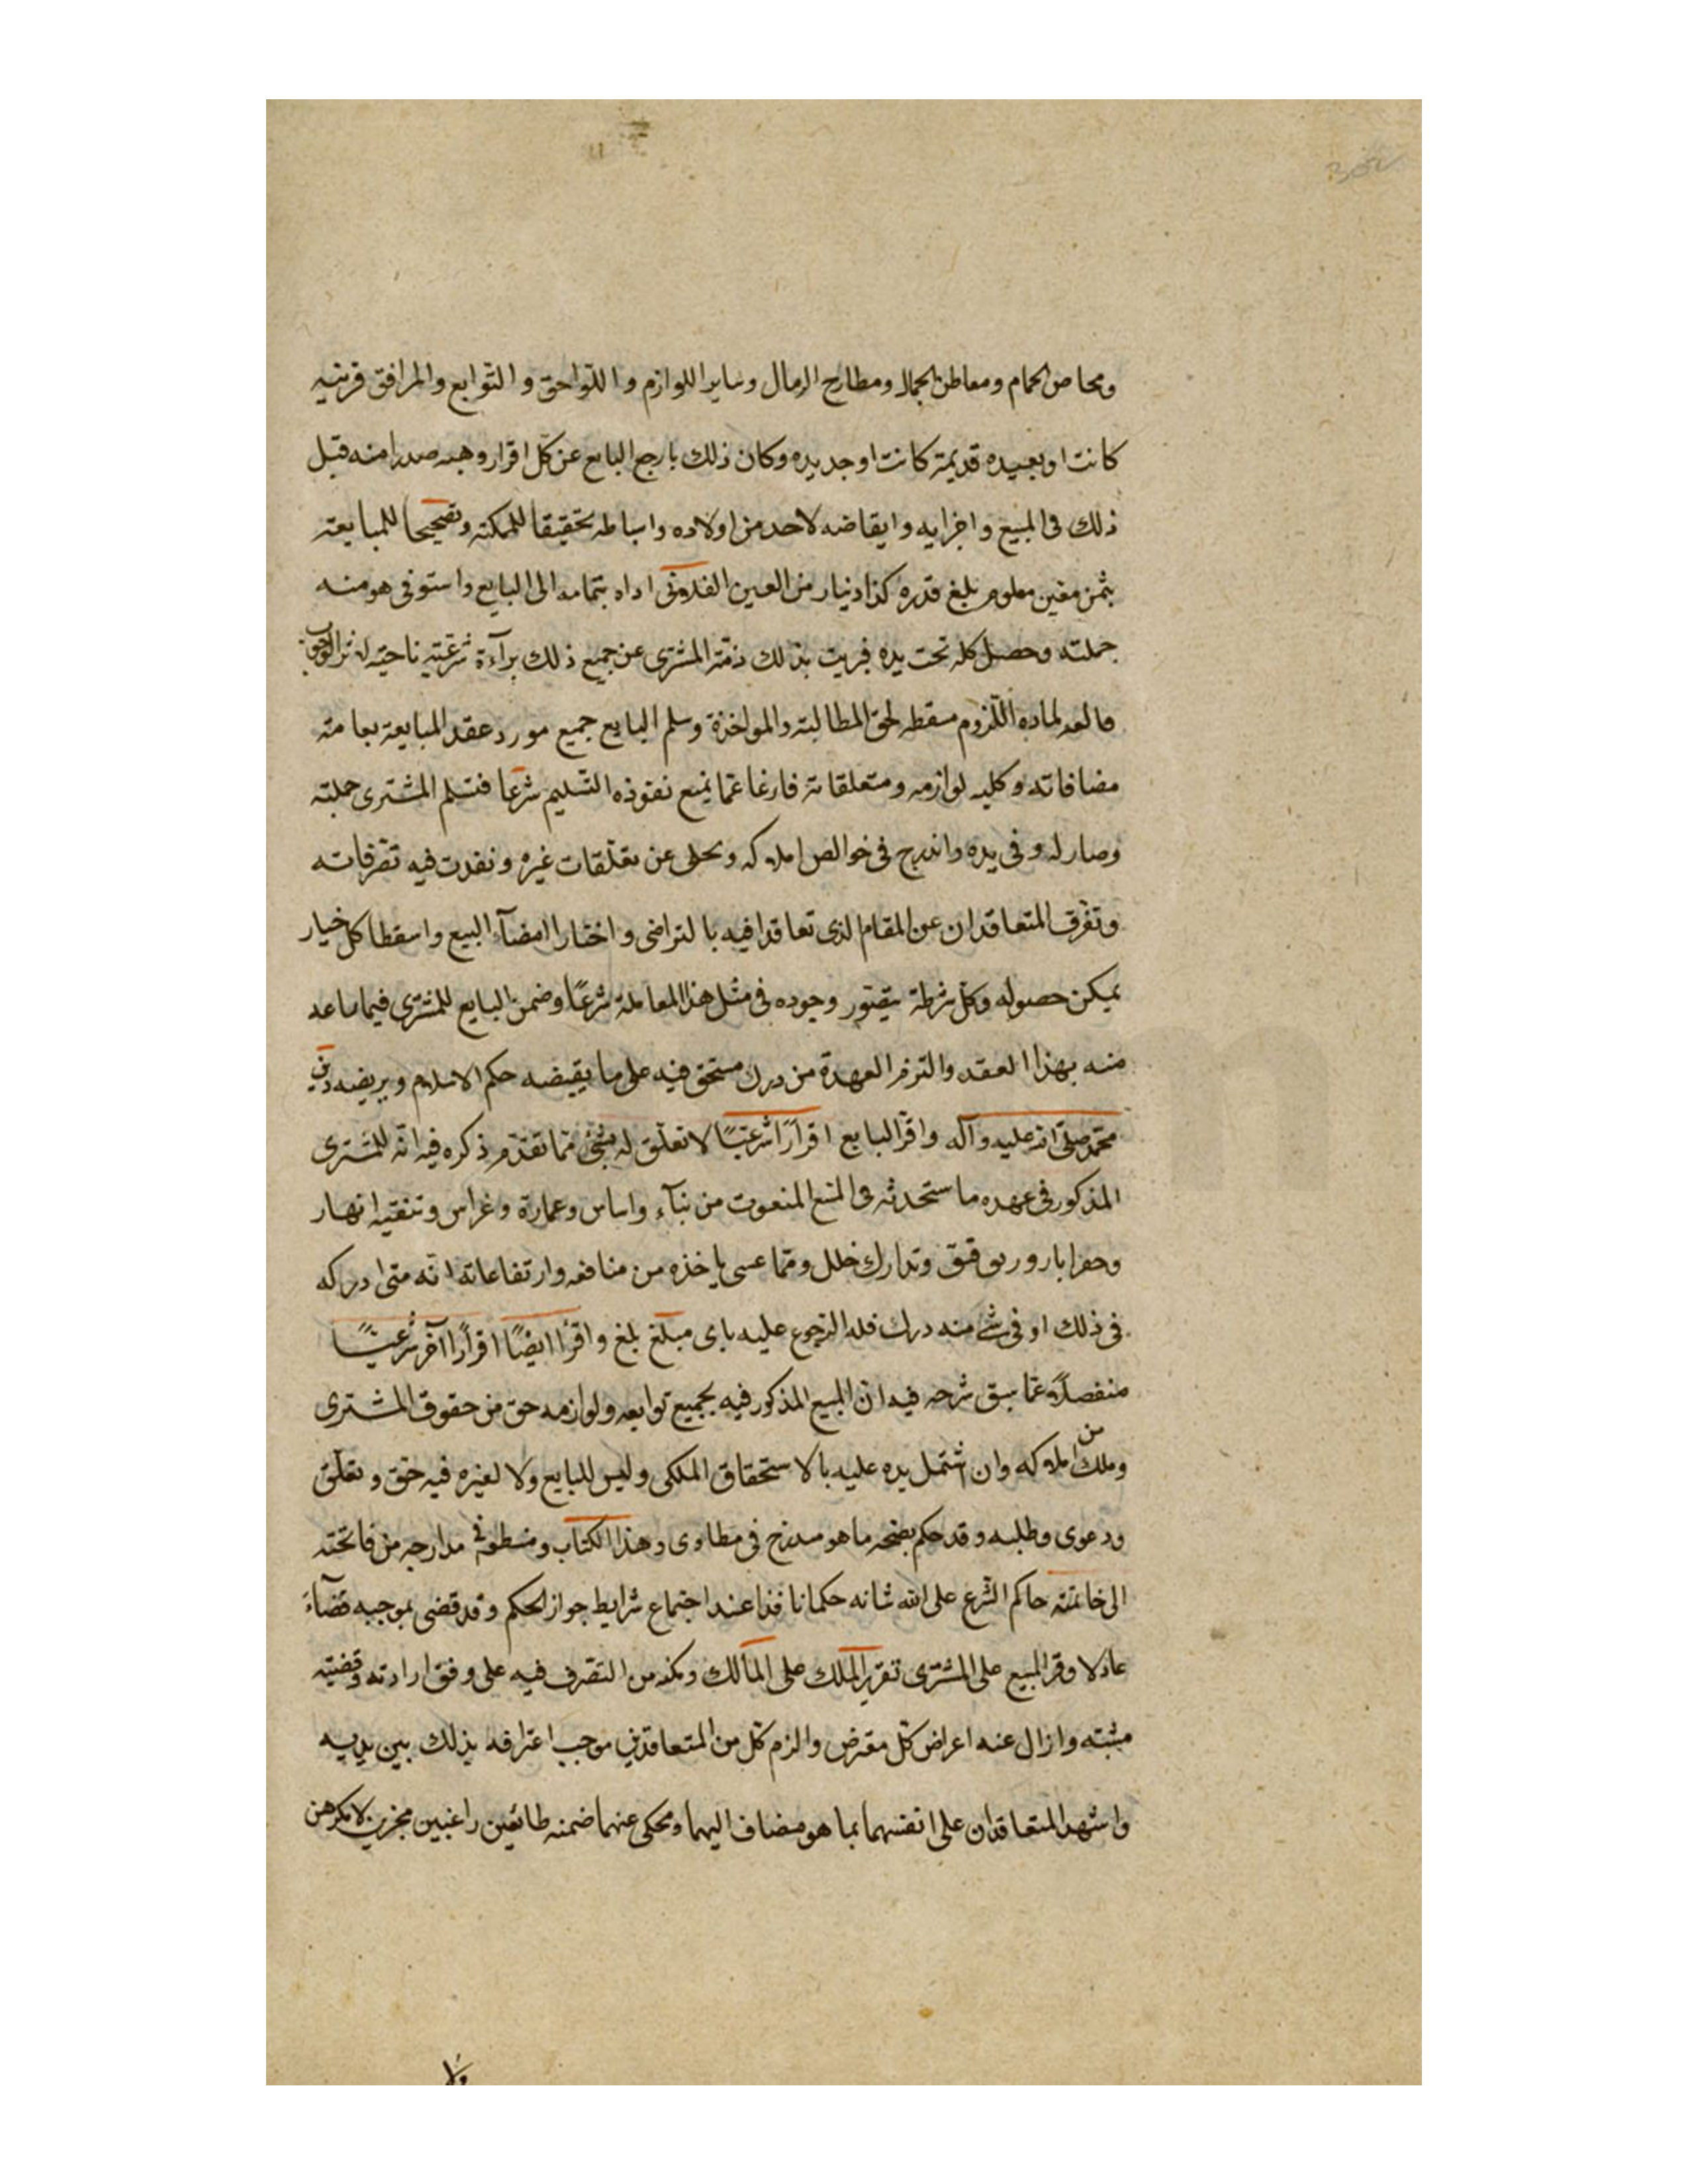 ومحاص الحمام ومعاطن الجمال ومطارح الرمال وساير اللوازم و اللواحق و التوابع والمرافق قريبه
كانت او بعيده قديمة كانت او جديده وكان ذلك بارجع البايع عن كل اقرار وهبه صدرا منه قبل
ذلك فى المبيع واجزايه وايقاضه لاحد من اولاده واسباطه تحقيقا للمكنه وتصحيحا للمبايعة
بثمن معين معلوم بلغ قدره كذا دنيار من العين الفلانى اداه بتمامه الى البايع واستوفى هو منه
جملته وحصل كله تحت يده فبريت بذلك ذمة المشترى عن جميع ذلك برآءة شرعية
لماده اللزوم مسقطه لحق المطالبة والمواخذة وسلم البايع جميع مورد عقد المبايعة بعامة
مضافاته وكليه لوازمه ومتعلقاته فارغا عما يمنع نفوذه التسليم شرعا فتسلم المشترى جملته
وصار له وفى يده واندرج فى خوالص املاكه وتخلى عن تعلقات غيره ونفدت فيه تصرفاته
وتفرق المتعاقدان عن المقام الذى تعاقدا فيه بالتراضى واختارا امضآء البيع واسقطا كل خيار
يمكن حصوله وكل شرطة يتصور وجوده فى مثل هذا المعاملة شرعًا وضمن البايع للمشترى فيما باعه
منه بهذا العقد والتزم العهدة من درك مستحق فيه على ما يقيضه حكم الاسلام ويريضه دين
محمد صلى الله عليه وآله واقر البايع اقرارًا شرعيًا لا تعلق له بشئ مما تقدم ذكره فيه انه للمشترى
المذكور فى عهده ما ستحدثه فى المنعوت من بنآء واساس وعمارة وغراس وتنقيه انهار
وحفر ابار وتدارك خلل ومما عسى ياخذه من منافعه وارتفاعاته انه متى ادركه
فى ذلك او فى شئ منه درك فله الرجوع عليه باى مبلغ بلغ واقرا ايضًا اقرارًا آخر شرعيًا
منفصلا عما سبق شرحه فيه ان المبيع المذكور فيه بجميع توابعه ولوازمه حق من حقوق المشترى
وملك من املاكه وان اشتمل يده عليه بالاستحقاق الملكى وليس للبايع ولا لغيره فيه حق وتعلق
ودعوى وطلبه وقد حكم بصحه ما هو مندرج فى مطاوى وهذا الكتاب مدارجه من فاتحته
الى خاتمته حاكم الشرع على الله شانه حكما نافذا عند اجتماع شرايط جواز الحكم وقد قضى بموجبه قضآء
عادلا وقر المبيع على المشترى تقرير الملك على المالك ومكنه من التصرف فيه على وفق ارادته وقضيته
مثبته وازال عنه اعراض كل معترض والزم كل من المتعاقدين موجب اعترافه بذلك بين يديه
واشهد المتعاقدان على انفسهما بما هو مضاف اليهما ومحكى عنهما ضمنه طائعين راغبين مجزين لامكرهين